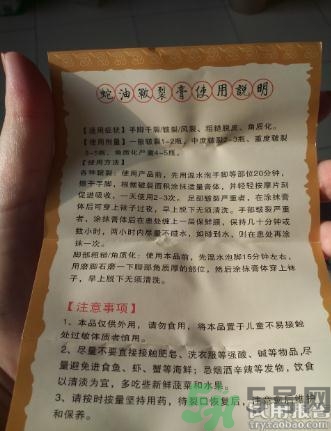 蛇油皲裂膏使用說明
【适用症状】手脚干裂/皲裂/风裂、粗糙脱皮、角质化。
【使用剂量】一般皲裂1-2瓶，中度皲裂2-3瓶，重度皲裂
3-5瓶，角质化严重4-5瓶。
【使用方法】
各种皲裂：使用产品前，先用温水泡手脚等部位20分钟，
擦干手脚，根据皲裂面积涂抹适量膏体，并轻轻按摩片刻
促进吸收，一天使用2-3次。足部皲裂严重者，在涂抹膏
体后可穿上袜子过夜，早上脱下无须清洗。手部皲裂严重
者，涂抹膏体后在患处缠上一层保鲜膜，保持几十分钟或
数小时，两小时内尽量不碰水，如碰到水，则在患处再涂
抹一次。
脚部粗糙/角质化：使用本品前，先温水泡脚15分钟左右，
用磨脚石磨一下脚部角质厚的部位，然后涂抹膏体穿上袜
子，早上脱下无须清洗。
【注意事项】
1、本品仅供外用，请勿食用，将本品置于儿童不易接触
处过敏体质者慎用。
2、尽量不要直接接触肥皂、洗衣服等强酸、碱等物品，尽
量避免进食鱼、虾、蟹等海鲜；忌烟酒辛辣等发物，饮食
以清淡为宜，多吃些新鲜蔬菜和水果。
3、请按时按量坚持用药，待裂口恢复后，注意做后维护
和保养。
5号网
试用报告
try.taobao.com